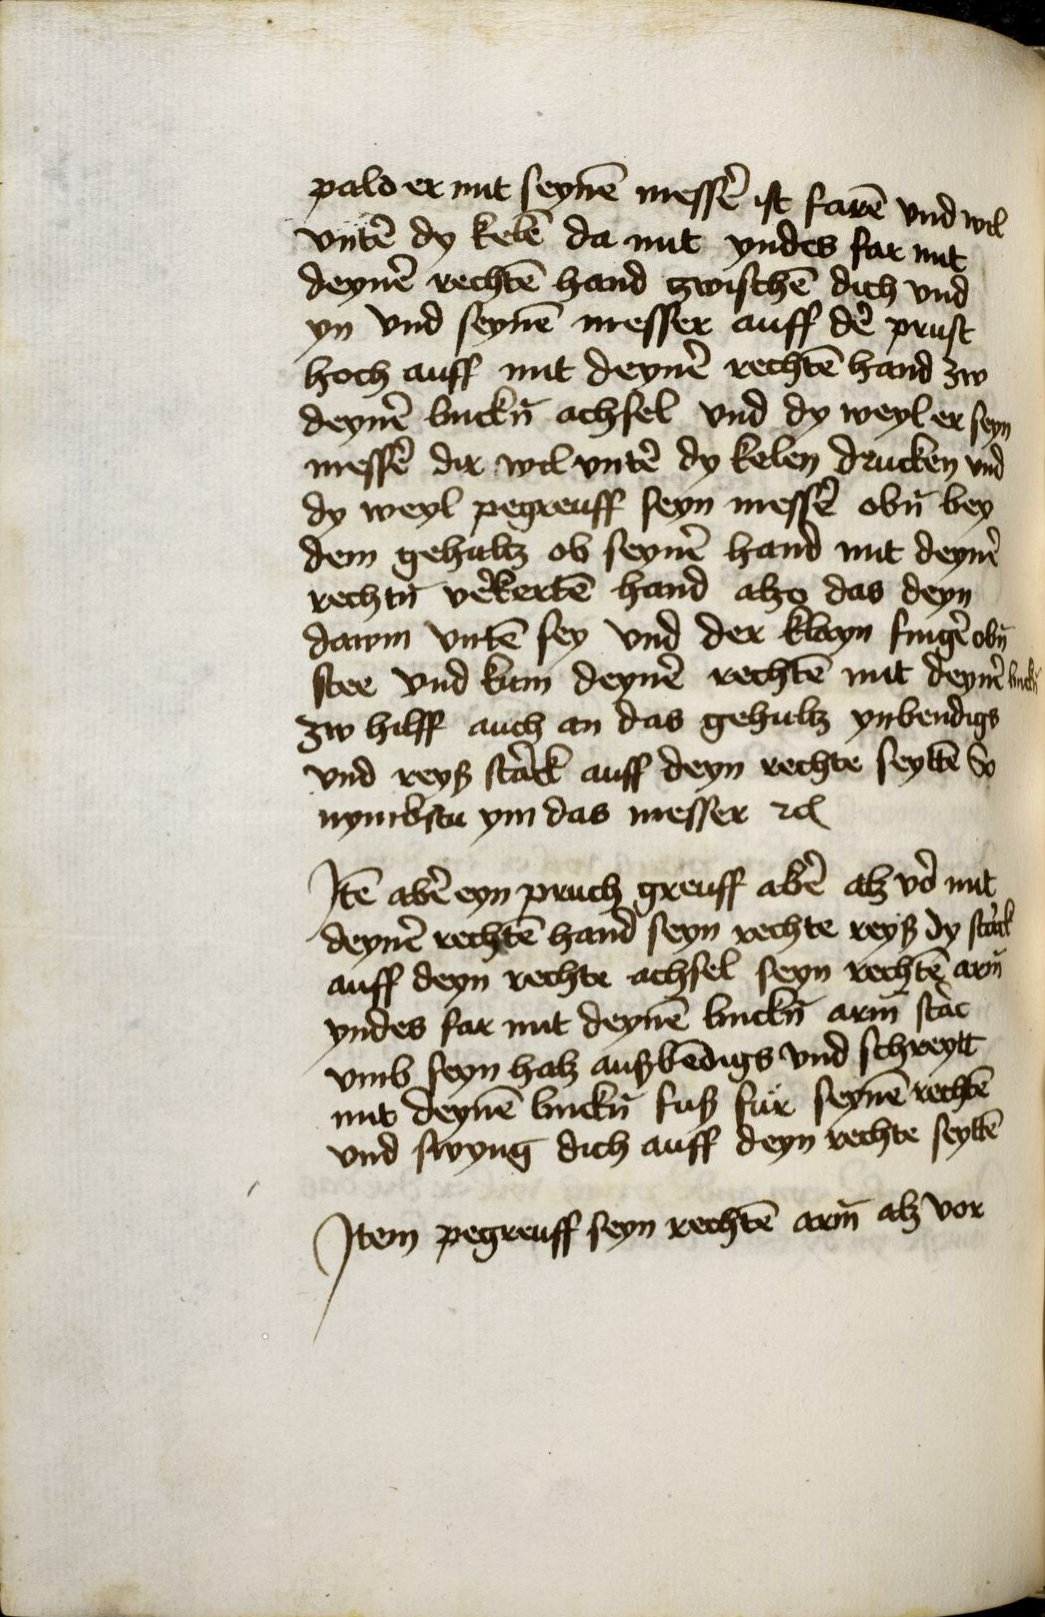 pald er mit seynē messē ist farē vnd wil
vntē dy kelē da mit yndes far mit
deynē rechtē hand zwischē dich vnd
yn vnd seynē messer auff dē prust
hoch auff mit deynē rechtē hand zw
deynē linckn̄ achsel vnd dy weyl er seyn
messē dir wil vntē dy kelen drucken vnd
dy weyl pegreuff seyn messē obn̄ bey
dem gehultz ob seynē hand mit deynē
rechtn̄ vēkertē hand alzo das deyn
dawm vntē sey vnd der klayn fingē obn̄
stee vnd kum deynē rechtē mit deynē linckn̄
zw hilff auch an das gehultz ynbendigs
vnd reyß starck auff deyn rechte seyttē So
nymbstu ym das messer ⁊c̃
Itē abē eyn pruch greuff abē alz vō mit
deynē rechtē hand seyn rechte reyß dy starck
auff deyn rechte achsel seyn rechtē arm̄
yndes far mit deynē linckn̄ arm̄ starc
vmb seyn halz außbēdigs vnd schreytt
mit deynē linckn̄ fuß für seynē rechtē
vnd swyng dich auff deyn rechte seyttē
Item pegreuff seyn rechtē arm̄ alz vor